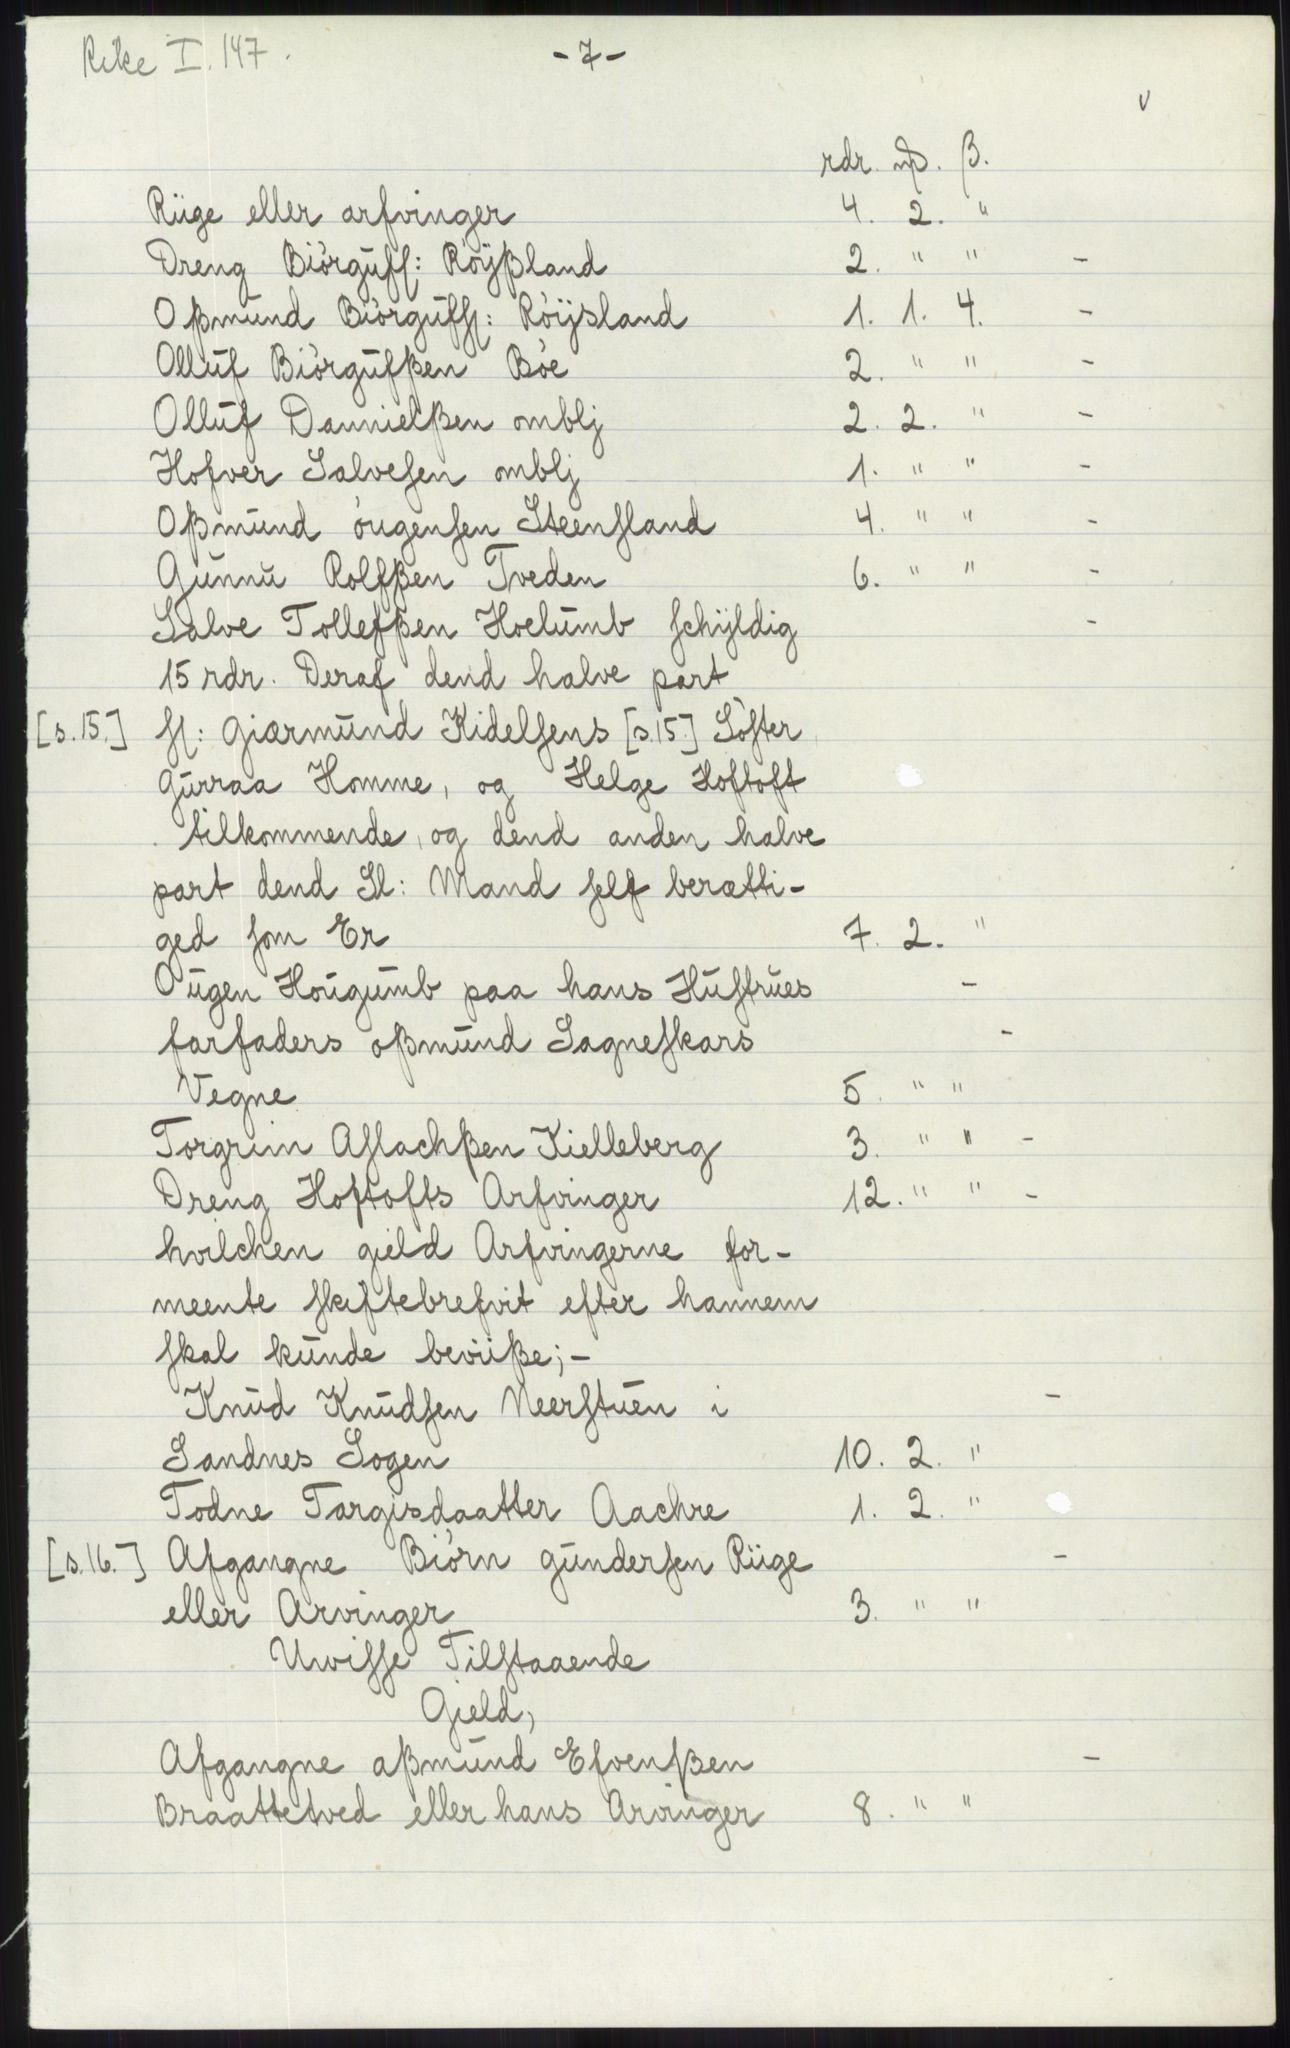 Rike I. 147.
- 7 -
v
rdr. mþ. β.
Riige eller arfvinger 4. 2. "
Dreng Biörgufſ: Röÿßland 2. " " -
Oßmund Biörgufſſ: Röÿsland 1. 1. 4. -
Olluf Biörgufßen Böe 2. " " -
Olluf Dannielßen omblj 2. 2. " -
Hofver Salveſen omblj 1. " " -
Oßmund öugenſen Steenſland 4. " " -
Gunnu Rolfßen Tveden 6. " " -
Salve Tollefßen Hoelumb ſchÿldig -
15 rdr. Deraf dend halve part
[s. 15.] ſl: Giærmund Kidelſens [s. 15.] Söſter
Gurraa Homme, og Helge Hoftoft
tilkommende, og dend anden halve
part dend Sl: Mand ſelf berætti-
ged ſom Er 7. 2. "
Ougen Hougumb paa hans Huſtrues -
farfaders oßmund Sagneſkars -
Vegne 5. " "
Torgrim Aſlachßen Kielleberg 3. " " -
Dreng Hoftofts Arfvinger 12. " " -
hvilchen gield Arfvingerne for-
meente ſkiftebrefvit efter hannem
ſkal kunde beviiße; -
Knud Knudſen Neerſtuen i -
Sandnes Sogen 10. 2. "
Todne Targisdaatter Aachre 1. 2. "
[s. 16.] Afgangne Biörn gunderſen Riige -
eller Arvinger 3. " "
Uviſſe Tilſtaaende
Gield,
Afgangne aßmund Efvenßen -
Braattetved eller hans Arvinger 8. " "